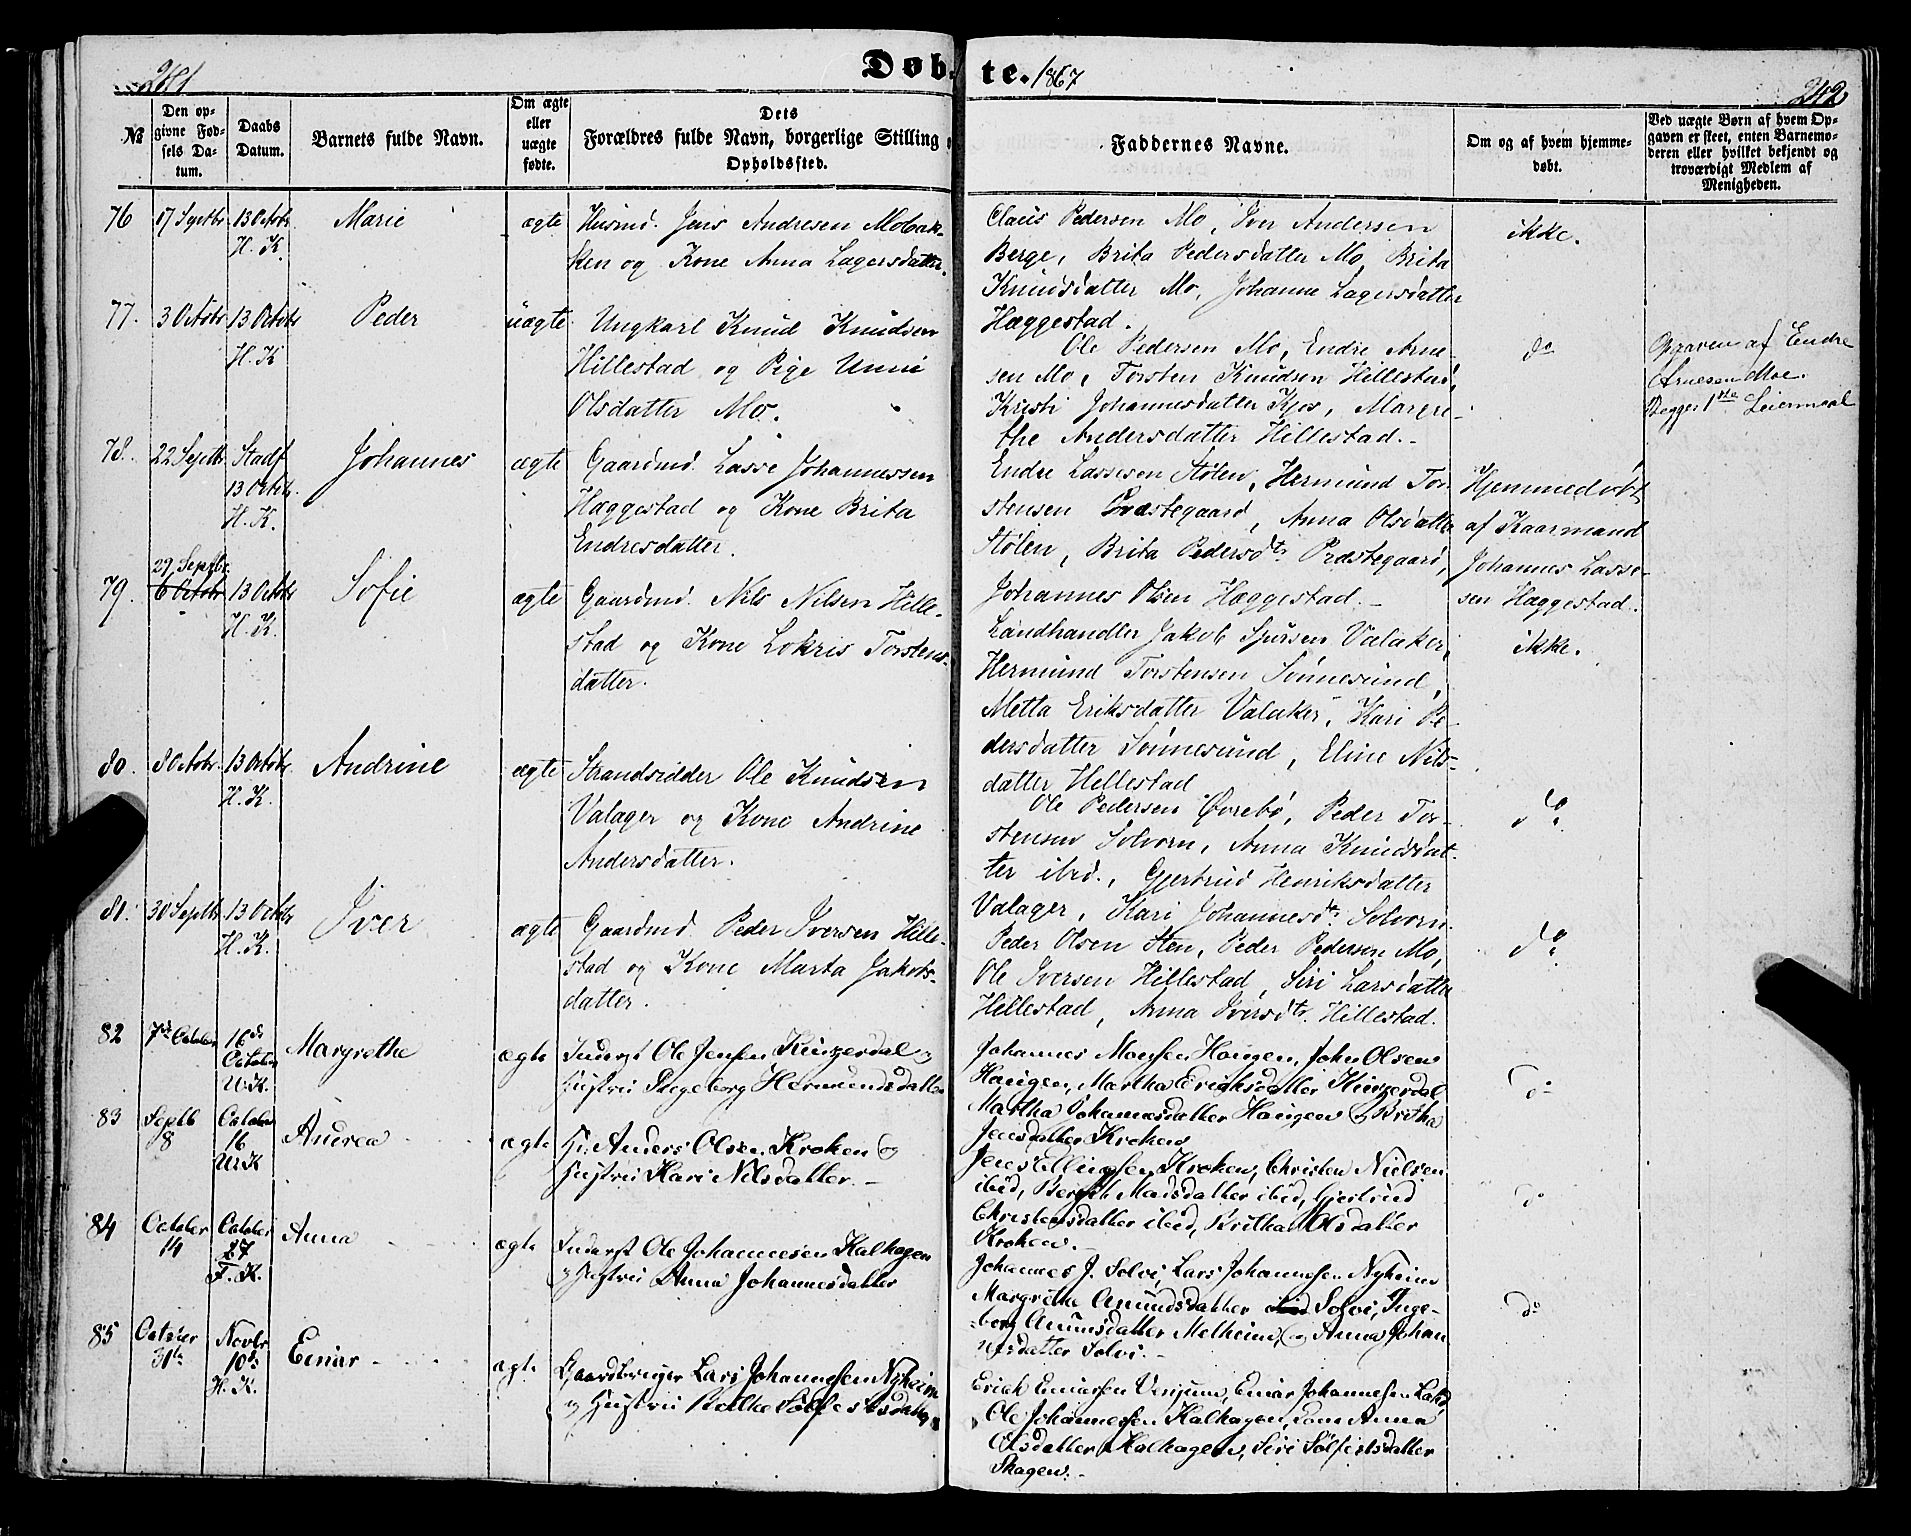 241
Døbte. 1867
242
№
Den opgivne Fødsels Datum.
Daabs Datum.
Barnets fulde Navn.
Om ægte eller uægte fødte.
Dets Forældres fulde Navn, borgerlige Stilling o Opholdssted.
Faddernes Navne.
Om og af hvem hjemmedøbt.
Ved uægte Børn af hvem Opgaven er skeet, enten Barnemoderen eller hvilket bekjendt og troværdigt Medlem af Menigheden.
76 17 Septbr. 13 Octobr. H. K. Marie ægte
Husmd. Jens Andresen Mobak-
ken og Kone Anna Lagersdatter.
Claus Pedersen Mo, Iver Andersen
Berge, Brita Pedersdatter Mo, Brita
Knudsdatter Mo, Johanne Lagersdatter
Hæggestad.
ikke.
77. 3 Octobr. 13 Octobr H. K Peder uægte
Ungkarl Knud Knudsen
Hillestad og Pige Unni
Olsdatter Mo.
Ole Pedersen Mo, Endre Arne-
sen Mo, Torsten Knudsen Hillestad,
Kristi Johannesdatter Kjos, Margre-
the Andersdatter Hillestad.-
do
Opgaven af Endre
Arnesen Moe.
Begges 1ste Leiermaal
78. 22 Septbr. Stadf. 13 Octobr. H. K. Johannes ægte
Gaardmd. Lasse Johannessen
Hæggestad og Kone Brita
Endresdatter.
Endre Lassesen Stølen, Hermund Tor-
stensen Præstegaard, Anna Olsdatter
Stølen, Brita Pedersdtr Præstegaard,
Johannes Olsen Hæggestad.-
Hjemmedøbt
af Kaarmand
Johannes Lasse-
sen Hæggestad.
79. 29 Septbr. 6 Octobr 13 Octobr H. K. Sofie ægte
Gaardmd. Nils Nilsen Hille-
stad og Kone Lokris Torstens-
datter.
Landhandler Jakob Sjursen Valaker,
Hermund Torstensen Sønnesund,
Metta Eriksdatter Valaker, Kari Pe-
dersdatter Sønnesund, Eline Nils-
datter Hillestad
ikke.
80. 8 Octobr. 13 Octobr. H. K. Andrine ægte
Strandsidder Ole Knudsen
Valager og Kone Andrine
Andersdatter.
Ole Pedersen Øvrebø, Peder Tor-
stensen Solvorn, Anna Knudsdat-
ter ibid., Gjertrud Henriksdatter
Valager, Kari Johannesdtr Solvorn.
do.
81. 30 Septbr 13 Octobr H. K. Iver ægte
Gaardmd. Peder Iversen Hille-
stad og Kone Marta Jakobs-
datter.
Peder Olsen Sten, Peder Pedersen Mo,
Ole Iversen Hillestad, Siri Larsdatter
Hillestad, Anna Iversdtr. Hillestad.
do.
82 7de October 16de October U. K. Margrethe ægte
Inderst Ole Jensen Kinzerdal og
Hustru Ingeborg Hermundsdatter
Johannes Monsen Haugen, John Olsen
Haugen, Martha Eriksdatter Kinzerdal
Martha Johannesdatter Haugen og Britha
Jensdatter Kroken
do
83 Septb 8 October 16 U. K Andrea ægte
Hr. Anders Olsen Kroken og
Hustru Kari Nilsdatter.-
Jens Ellingsen Kroken, Christen Nielsen
ibid, Bergith Madsdatter ibid, Gjertrud
Christensdatter ibid, Britha Olsdatter
Kroken.-
do
84 October 14 October 27 F. K. Anna ægte
Inderst Ole Johannesen Kalhagen
og Hustru Anna Johannesdatter
Johannes J. Solvi, Lars Johannesen Nyheim
Margrethe Amundsdatter Solvi, Inge-
borg Amunsdatter Melheim, og Anna Johan
nesdatter Solvi.-
do
85 October 31te Novbr 10de H. K. Einar ægte
Gaardbruger Lars Johannesen Nyheim
og Hustru Bolthe Sølfestsdatter
Erich Einarsen Venjum, Einar Johannesen Lad,
Ole Johannesen Kalhagen, Anna
Olsdatter Kalhagen, Siri Sølfestsdatter
Skagen.-